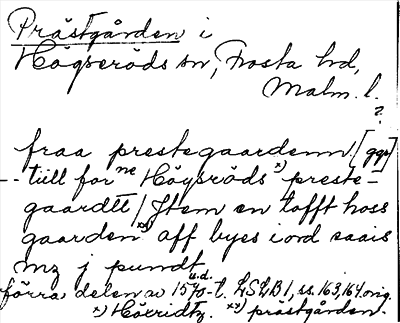 Prästgården i
Högseröds sn, Frosta hd,
Malm. l.
?
fraa prestegaardenn/[ggr]
- till for ne Höysröds x) preste-
gaardtt/Jtem en tofft hoss
gaarden xx) aff byes iord saais
mz j pundt
u.d.
förra delen av 1570-t. LSLB1, ss. 163, 164 orig.
x) Hörridtz. xx) prästgården.